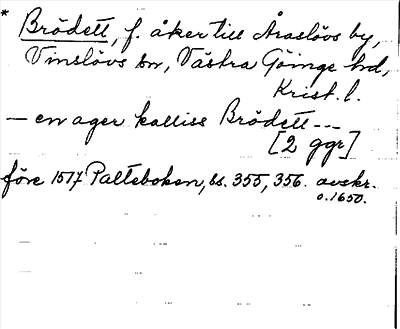 * Brödett, f. åker till Araslövs by,
Vinslövs sn, Västra Göinge hd,
Krist. l.
— en ager kalliss Brödett ---
[2 ggr]
före 1517 Palteboken, ss. 355, 356. avskr.
o. 1650.